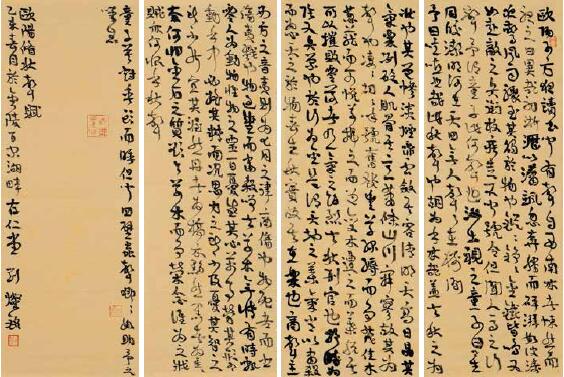 歐陽子方夜讀書聞有聲自西南來者悚然而
聽之曰異哉初淅瀝以蕭颯忽奔騰而砰湃如波濤
夜驚風雨驟至其觸於物也鏦鏦錚錚金鐵皆鳴又
如赴敵之兵銜枚疾走不聞號令但聞人馬之行
聲予謂童子此何聲也汝出視之童子曰星月皎
潔明河在天四無人聲聲在樹間
予曰噫嘻悲哉此秋聲也胡為而來哉蓋夫秋之為
狀也其色慘淡煙霏雲斂其容清明天高日晶其
氣慄冽砭人肌骨其意蕭條山川寂寥故其為
聲也淒淒切切呼號憤發豐草綠縟而爭茂佳木
蔥蘢而可悅草拂之而色變木遭之而葉脫其所
以摧敗零落者乃其一氣之餘烈夫秋刑官也於時為
陰又兵象也於行為金是謂天地之義氣常以肅殺
而為心天之於物春生秋實故其在樂也商聲
主西方之音夷則為七月之律商傷也物既老而悲
傷夷戮也物過盛而當殺嗟乎草木無情有時飄
零人為動物惟物之靈百憂感其心萬事勞其形有
動於中必搖其精而況思其力之所不及憂其智之
所不能宜其渥然丹者為槁木黟然黑者為星星
奈何以非金石之質欲與草木而爭榮念誰為之戕
賊亦何恨乎秋聲
童子莫對垂頭而睡但聞四壁蟲聲唧唧如助予之
嘆息
歐陽脩秋聲賦
月於金陵百家湖畔存仁堂劉燦銘